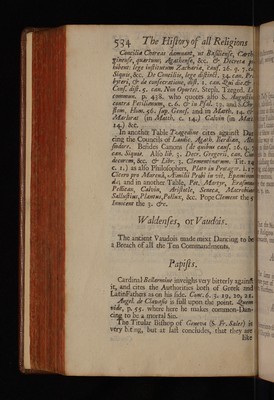 534 The History of all Religions
Concilia Chorea damnant, ut Basiliense, Carth-
aginense, quartum, Agathense, &c. & Decreta p
hibent: lege institutum Zachariæ, Conf. 26. q. can.
Siquis, &c. De Concilio, lege distinct. 34. can. Pr
byteri, & de consecratione, dist. 1. can. Qui die &
Conf. dist. 5. can. Non Oportet, Steph. Tzeged. L
commun. p. 438. who quotes also S. Augustin
contra Petilianum, c. 6. & in Psal. 32. and S. Chr
stom, Hom. 56. sup. Genes. and in Math. 14. &
Marlorat (in Math. c. 14.) Calvin (in Mat.
14.) &c.
In another Table Tragedius cites against Dan-
cing the Councils of
Besides Canons
can. Siquis. Also lib. 3. Decr. Gregorii, can. Cu
decorem, &c. & Libr. 3. Clementinarum. Tit. 14
c. 1.) as also Philosophers, Plato in Protagr. l. 17
Cicero pro Murena, Æmilii Probi in vit. Epaminon
dæ; and in another Table, Pet. Martyr, Erasmus
Pellican, Calvin, Aristotle, Seneca, Macrobius
Sallustius, Plautus, Pollux, &c. Pope Clement the 5
Innocent the 3. &c.
Waldenses, or Vaudois.
The ancient Vaudois made next Dancing to be
a Breach of all the Ten Commandments.
Papists.
Cardinal Bellarmine inveight very bitterly against
it, and cites the Authorities both of Greek and
Latin Fathers as on his side. Con. 6. 3. 19, 20, 21.
Angel. de Clavasio is full upon the point. Quem
vide, p. 55. where here he makes common Dan-
cing to be a mortal Sin.
The Titular Bishop of Geneva (S. Fr. Sales) is
very biting, but at last concludes, that they are
like